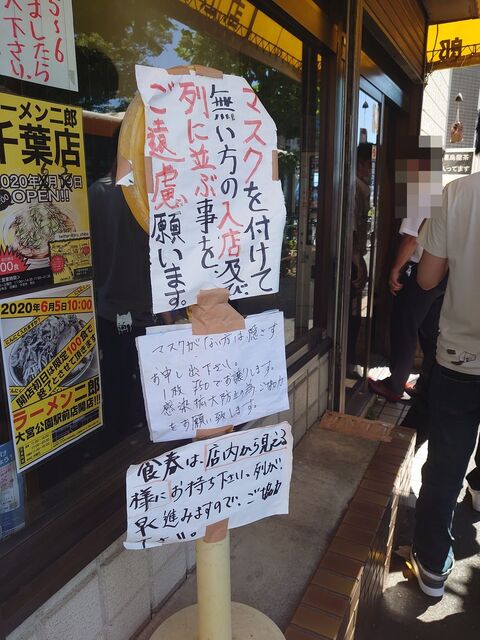 5〜6
ましたら
下さい。
ラーメン二郎
千葉店
OPEN!!!
2020年6月5日10:00
開店初日は限定100食で
終了とさせて頂きます
ラーメン二郎
大宮公園駅前店開店!!!
マスクを付けて
無い方の入店及び
列に並ぶ事を
ご遠慮願います。
マスクがない方は隠さず
お申し出下さい。
感染拡大防止の為ご協力
をお願い致します。
食券は、店内から見える
様にお持ち下さい、列が
早く進みますので、ご協力
下さい。
郎